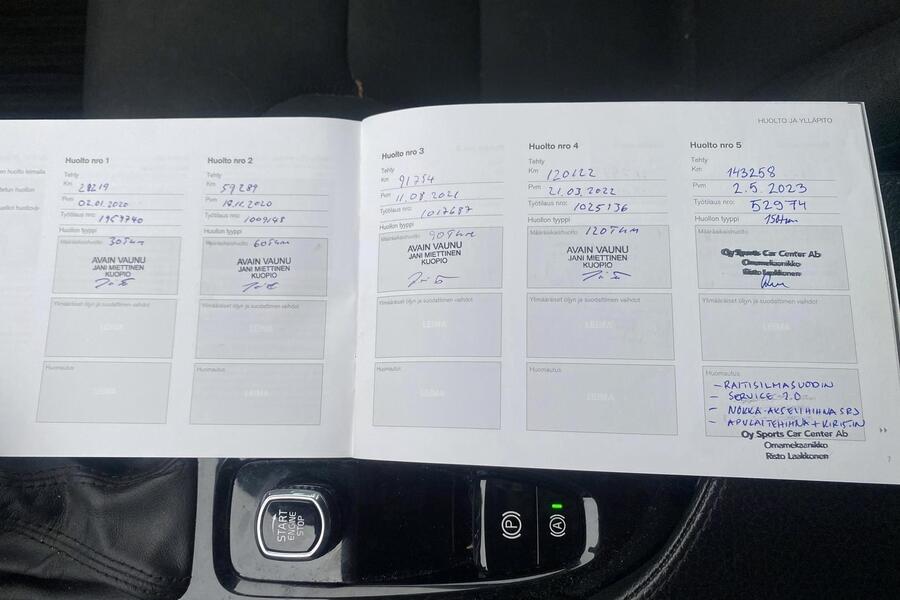 HUOLTO JA YLLÄPITO
Huolto nro 1
Km 28219
Pvm 02.01.2020
Työtilaus nro: 1959740
Huollon tyyppi
Määräaikaishuolto 30Tkm
AVAIN VAUNU
JANI MIETTINEN
KUOPIO
Ylimääräiset öljyn ja suodattimen vaihdot
LEIMA
Huomautus
LEIMA
Huolto nro 2
Tehty
Km 59289
Pvm
Työtilaus nro: 1009148
Huollon tyyppi
Määräaikaishuolto 60Tkm
AVAIN VAUNU
JANI MIETTINEN
KUOPIO
Ylimääräiset öljyn ja suodattimen vaihdot
LEIMA
Huomautus
LEIMA
Huolto nro 3
Tehty
Km 91754
Pvm 11.08.2021
Työtilaus nro: 1017687
Huollon tyyppi
Määräaikaishuolto 90Tkm
AVAIN VAUNU
JANI MIETTINEN
KUOPIO
Ylimääräiset öljyn ja suodattimen vaihdot
LEIMA
Huomautus
LEIMA
Huolto nro 4
Tehty
Km 120122
Pvm 21.03.2022
Työtilaus nro: 1025136
Huollon tyyppi
Määräaikaishuolto 120Tkm
AVAIN VAUNU
JANI MIETTINEN
KUOPIO
Ylimääräiset öljyn ja suodattimen vaihdot
LEIMA
Huomautus
LEIMA
Huolto nro 5
Tehty
Km 143258
Pvm 2.5.2023
Työtilaus nro: 52974
Huollon tyyppi
Oy Sports Car Center Ab
Omamekaanikko
Risto Laakkonen
Ylimääräiset öljyn ja suodattimen vaihdot
LEIMA
Huomautus
- RAITISILMASUODIN
- SERVICE 2.0
- NOKKA-AKSELIHIHNA SRJ
- APULAITEHIHNA + KIRISTIN
Oy Sports Car Center Ab
Omamekaanikko
Risto Laakkonen
7
START
ENGINE
STOP
P
A